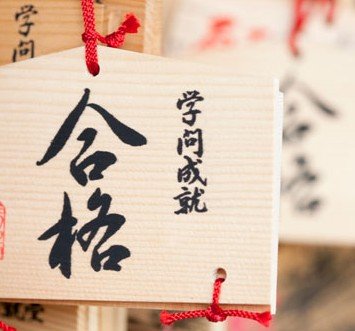 学問成就
合格
学問